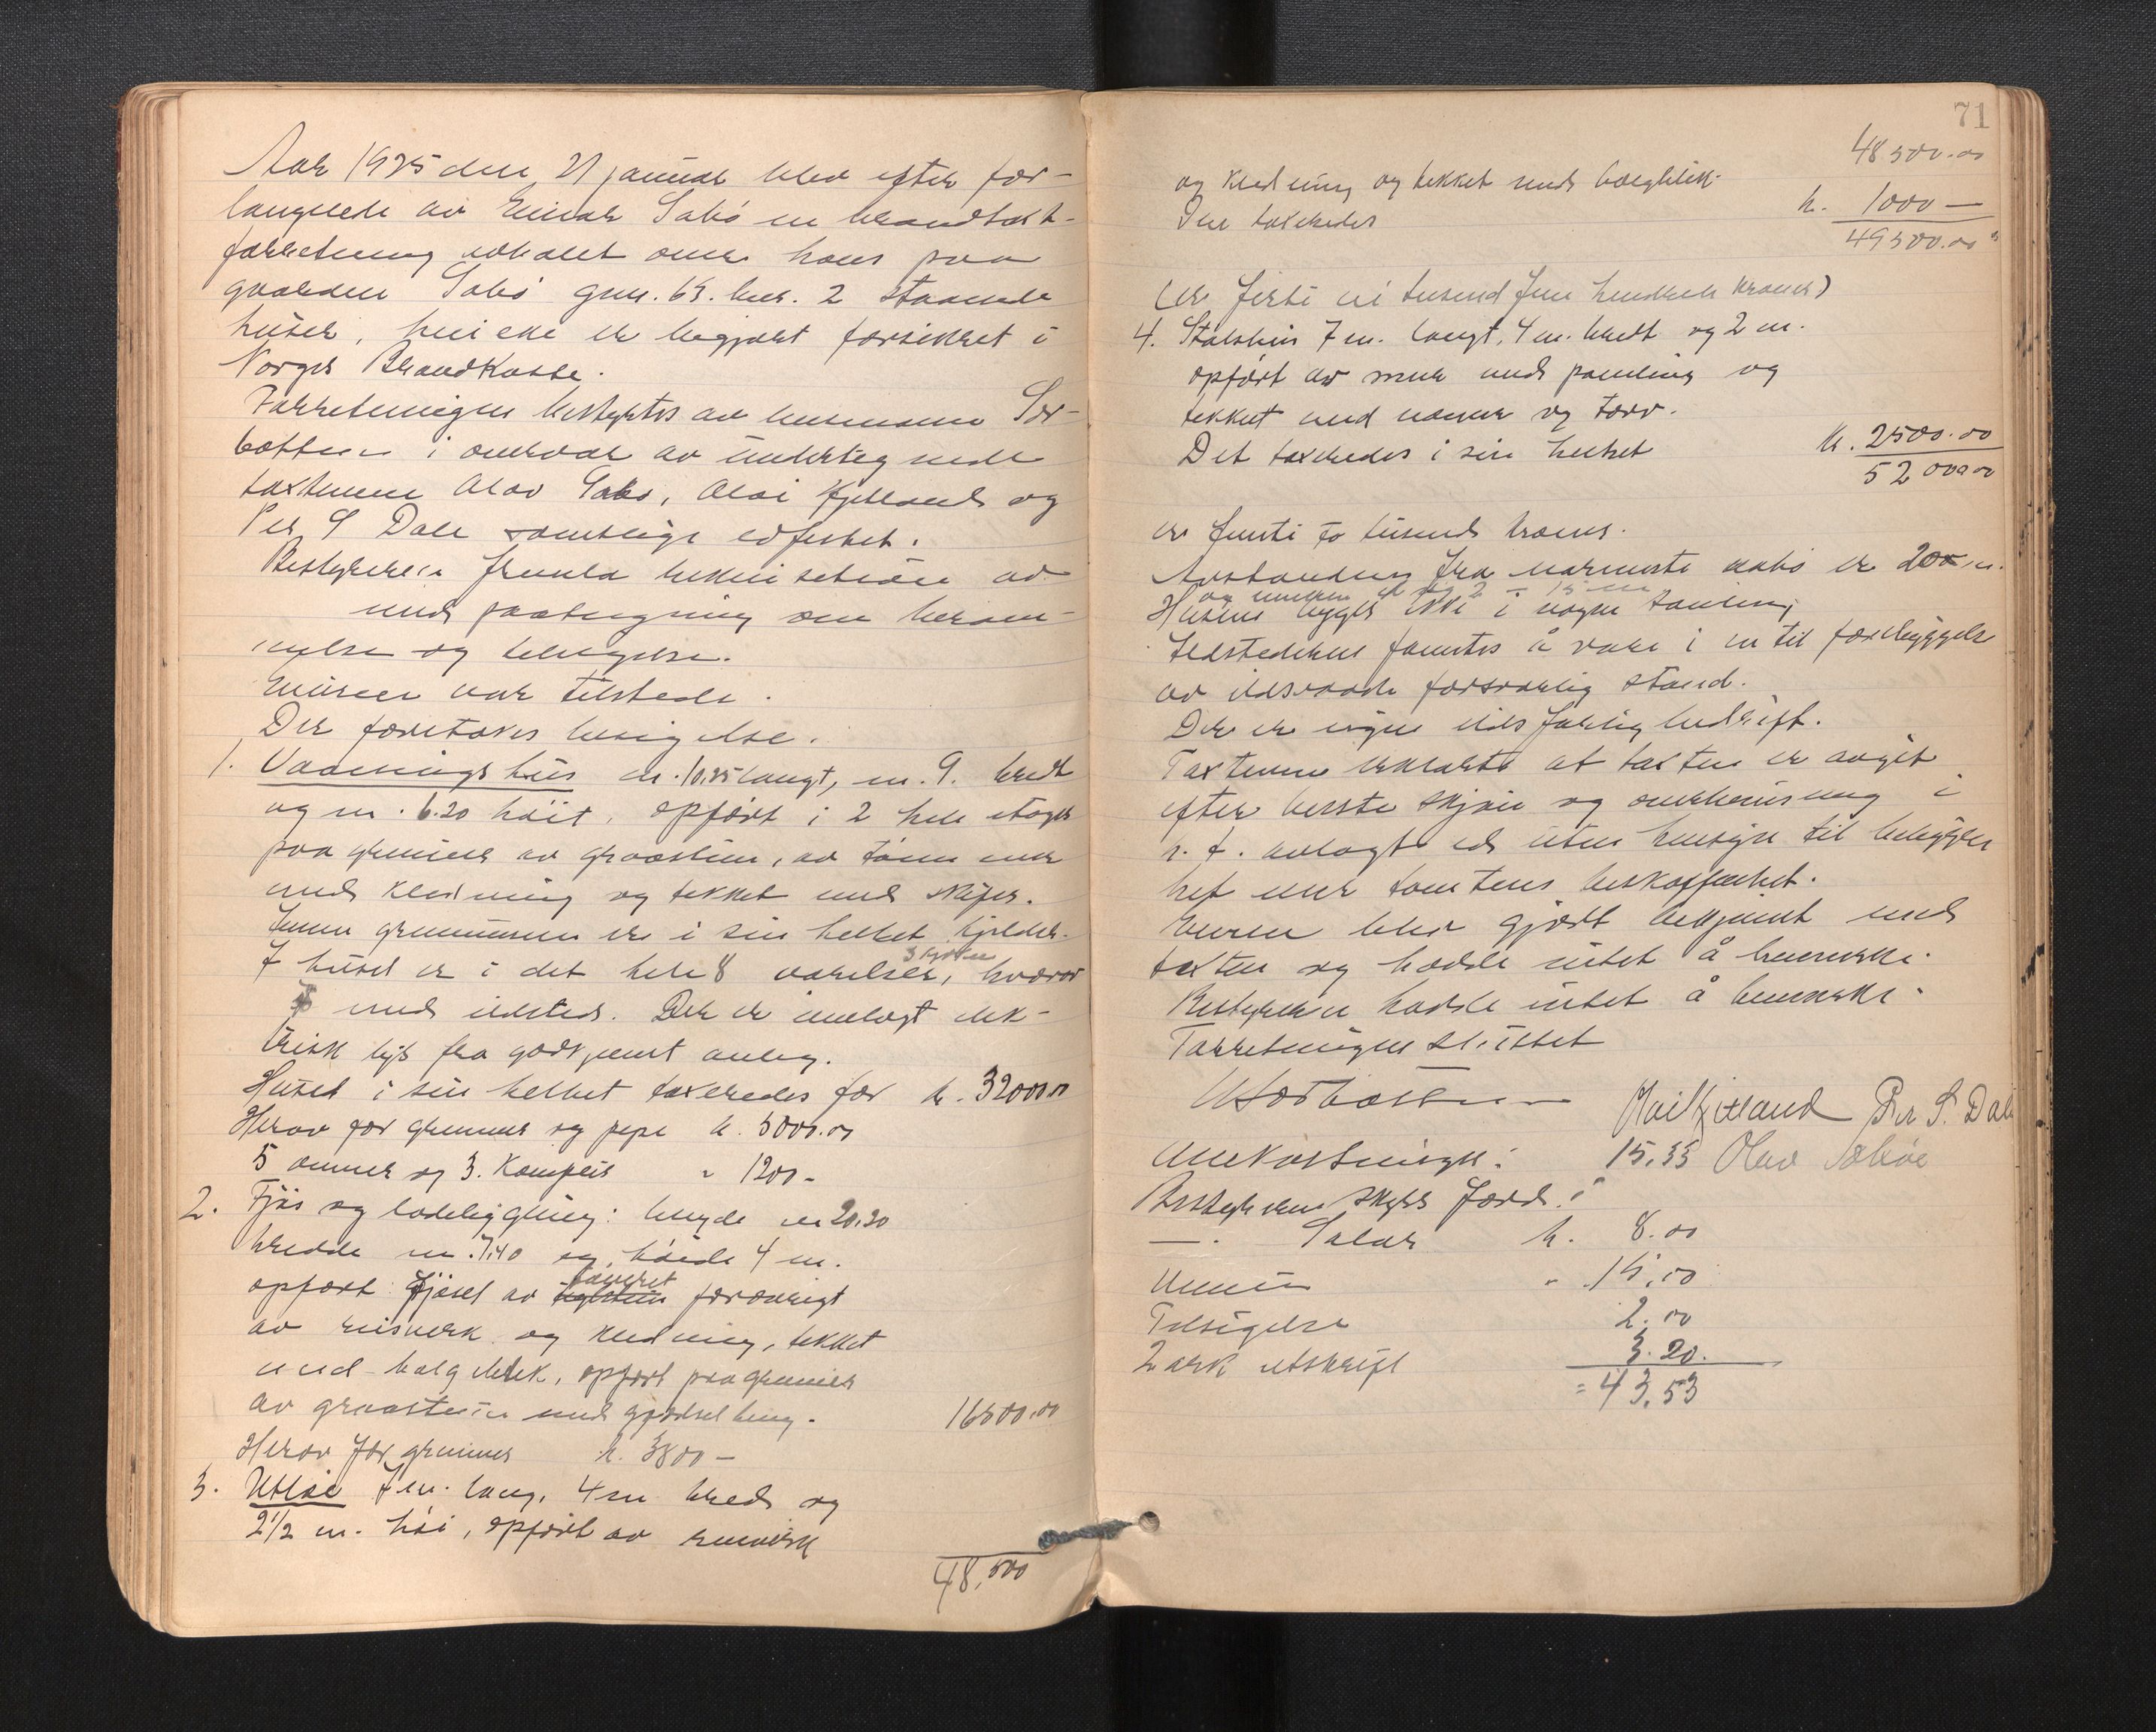 Aar 1925 den 21 januar blev efter for-
langende av Einar Sabø en brandtakst-
forretning avholdt over hans paa
gaarden Sabø gnr. 63. bnr. 2 staaende
huser, hvi er begjært forsikret i
Norges BrandKasse.
Forretningen bestyrtes av lensmann Sør-
bøtten i overvær av undertegnede
taxtmenn Olav Sabø, Olai Kjetland og
Per S Dale samtlige edfestet.
Bestyreren fremla rekvisition av
med paategning om beram-
melse og tilsigelse.
Eieren var tilstede.
Der foretokes besigtelse.
1. Vaaningshus m. 10.25 langt, m. 9. bredt
og m. 6.20 høit, opført i 2 hele etager
paa grunmur av graasten, av tømmer
med kledning og tekket med skifer.
Innen grunmuren er i sin helhet kjelder.
I huset er i det hele 8 varelser, hvorav
med ildsted. Der er innlagt elek-
trisk lys fra godkjent anleg.
Huset i sin helhet taxeredes for kr. 32000.00
Herav for grunmur og pipe kr. 5000.00
5 ovner og 3. Kompeis " 1200 -
2. Fjøs og ladebygning: lengde m 20.20
bredde m. 7.40 og høide 4 m.
opført fjøset av forøvrigt
av reisverk og kledning, tekket
med bølgeblekk, opført paa grunmur
av graasten med gjødselbing. 16500.00
Herav for grunmur kr. 3800 -
3. Utløe 7 m. lang, 4 m bred og
2 1/2 m. høi, opført av reisverk
48,500
71
48500.00
og kledning og tekket med bølgeblikk.
Den taxeredes kr. 1000 —
49500.00
(er førti ni tusend fem hundrede kroner)
4. Stølshus 7 m. langt, 4 m. bredt og 2 m.
opført av mur med paneling og
tekket med næver og torv.
Det taxeredes i sin helhet kr. 2500.00
52000.00
er femti to tusend kroner.
Avstanden fra nærmeste nabo er 200 m.
Husene ligger ikke i nogen samling
Ildstederne fantes å være i en til forebyggelse
av ildsvaade forsvarlig stand.
Der er ingen ildsfarlig bedrift.
Taxtmenn erklærte at taxten er avgit
efter beste skjøn og overbevisning i
h. t. avlagt ed uten hensyn til beliggen
het eller tomtens beskaffenhet.
Eieren blev gjort bekjent med
taxten og hadde intet å bemerke.
Bestyreren hadde intet å bemerke.
Forretningen sluttet
Olai Kjetland Per S. Dale
Omkostninger: 15,33 Olav Sabøe
Bestyrerens skyds fored.
—. Salær kr. 8.00
Menn " 15,00
Tilsigelse 2.00
2 ark utskrift 3.20.
= 43,53